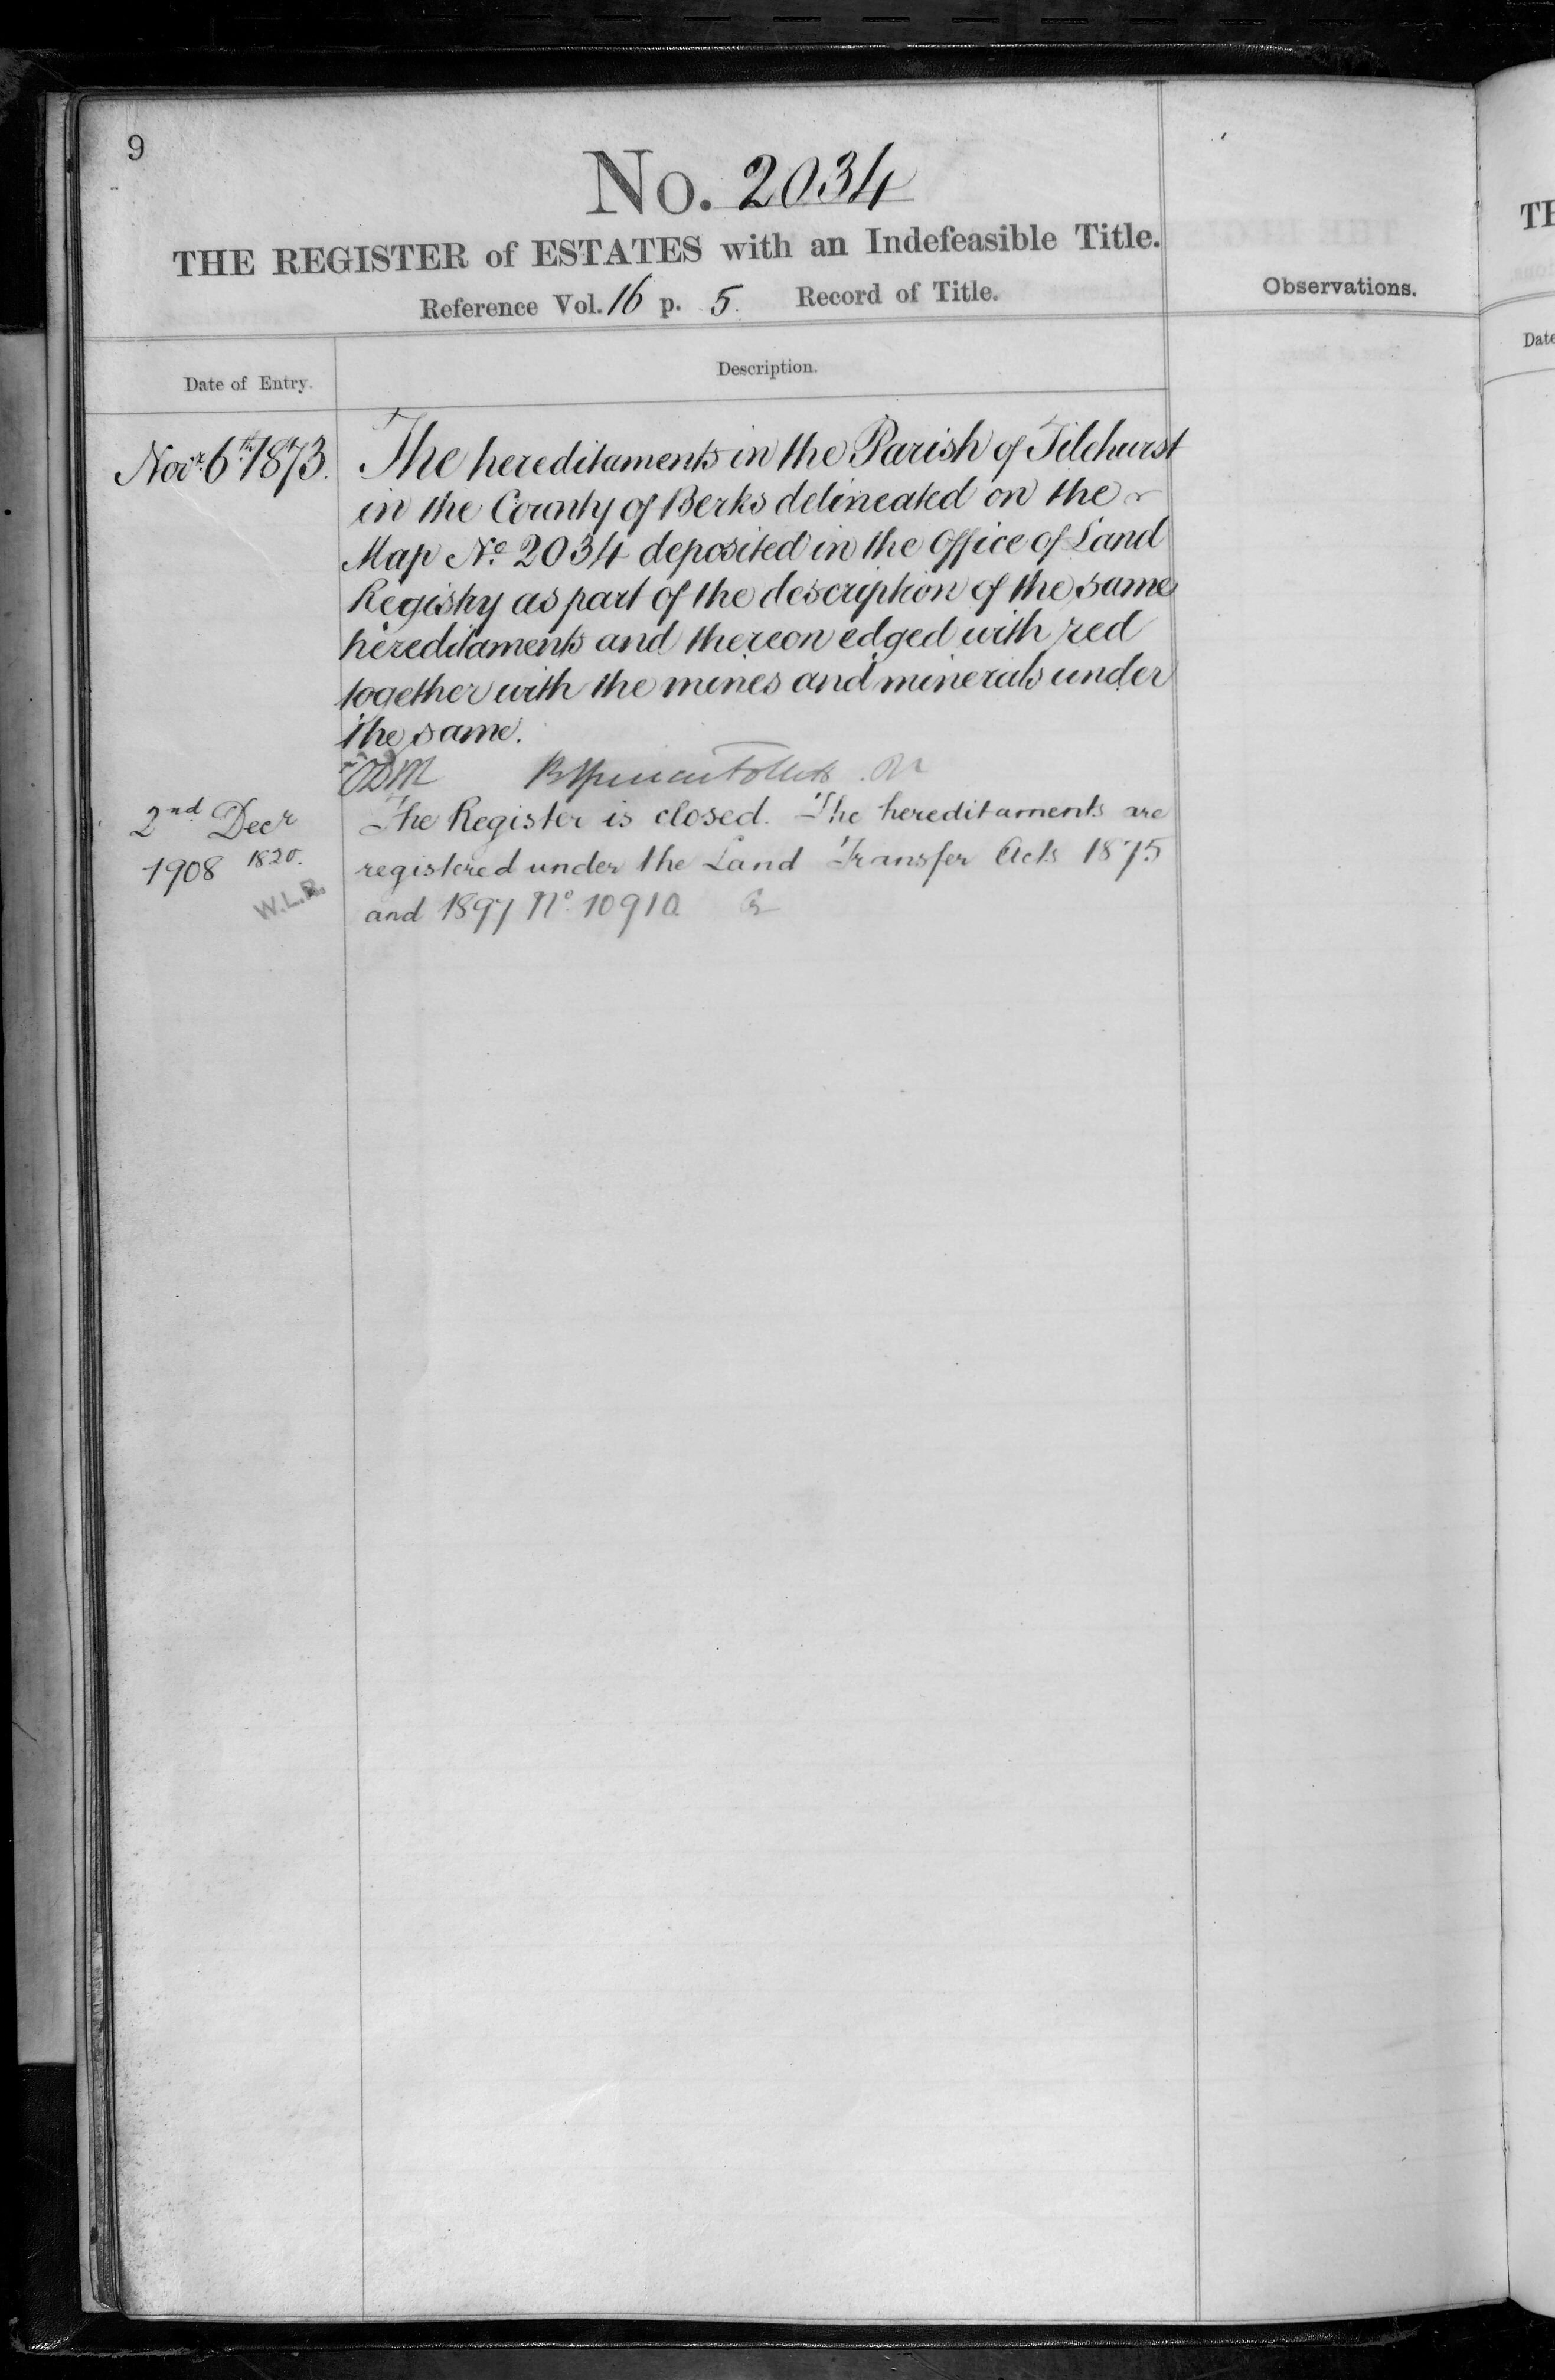 9
No. 2034
THE REGISTER of ESTATES with an Indefeasible Title.
Reference Vol. 16 p. 5. Record of Title.
Observations.
Date of Entry.
Description.
Novr. 6th. 1873.
The hereditaments in the Parish of Tilehurst
in the County of Berks delineated on the
Map No. 2034 deposited in the Office of Land
Registry as part of the description of the same
hereditaments and thereon edged with red
together with the mines and minerals under
the same.
2nd Decr
1908 1820.
W.L.R.
The Register is closed. The hereditaments are
registered under the Land Transfer Acts 1875
and 1897 No. 10910.
TH
Date